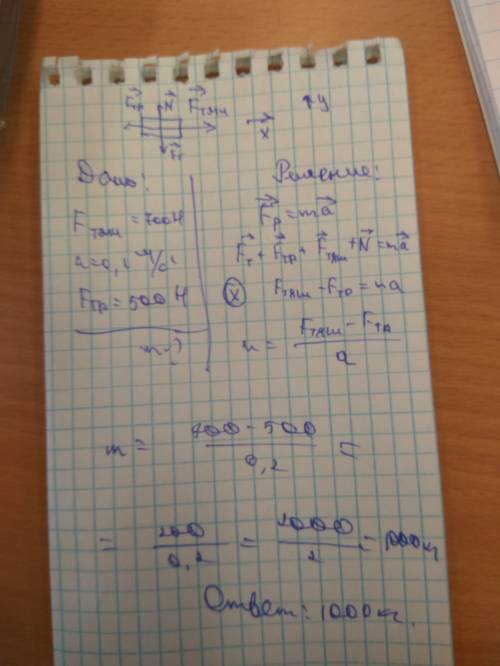 F⃗тр N⃗ F⃗тяги
F⃗т
x⃗
↑y
Дано:
Fтяги = 700 Н
a = 0,2 м/с²
Fтр = 500 Н
m - ?
Решение:
F⃗р = ma⃗
F⃗т + F⃗тр + F⃗тяги + N⃗ = ma⃗
(x) Fтяги - Fтр = ma
m = (Fтяги - Fтр)/a
m = (700 - 500)/0,2 =
= 200/0,2 = 2000/2 = 1000 кг
Ответ: 1000 кг.